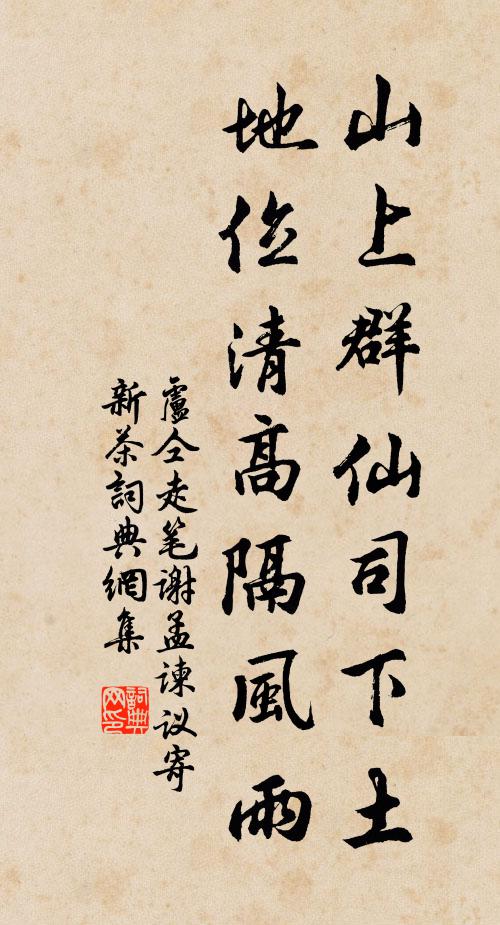 山上群仙司下土
地位清高隔風雨
盧仝走笔謝孟諫议寄
新茶詞典網集
詞典网印